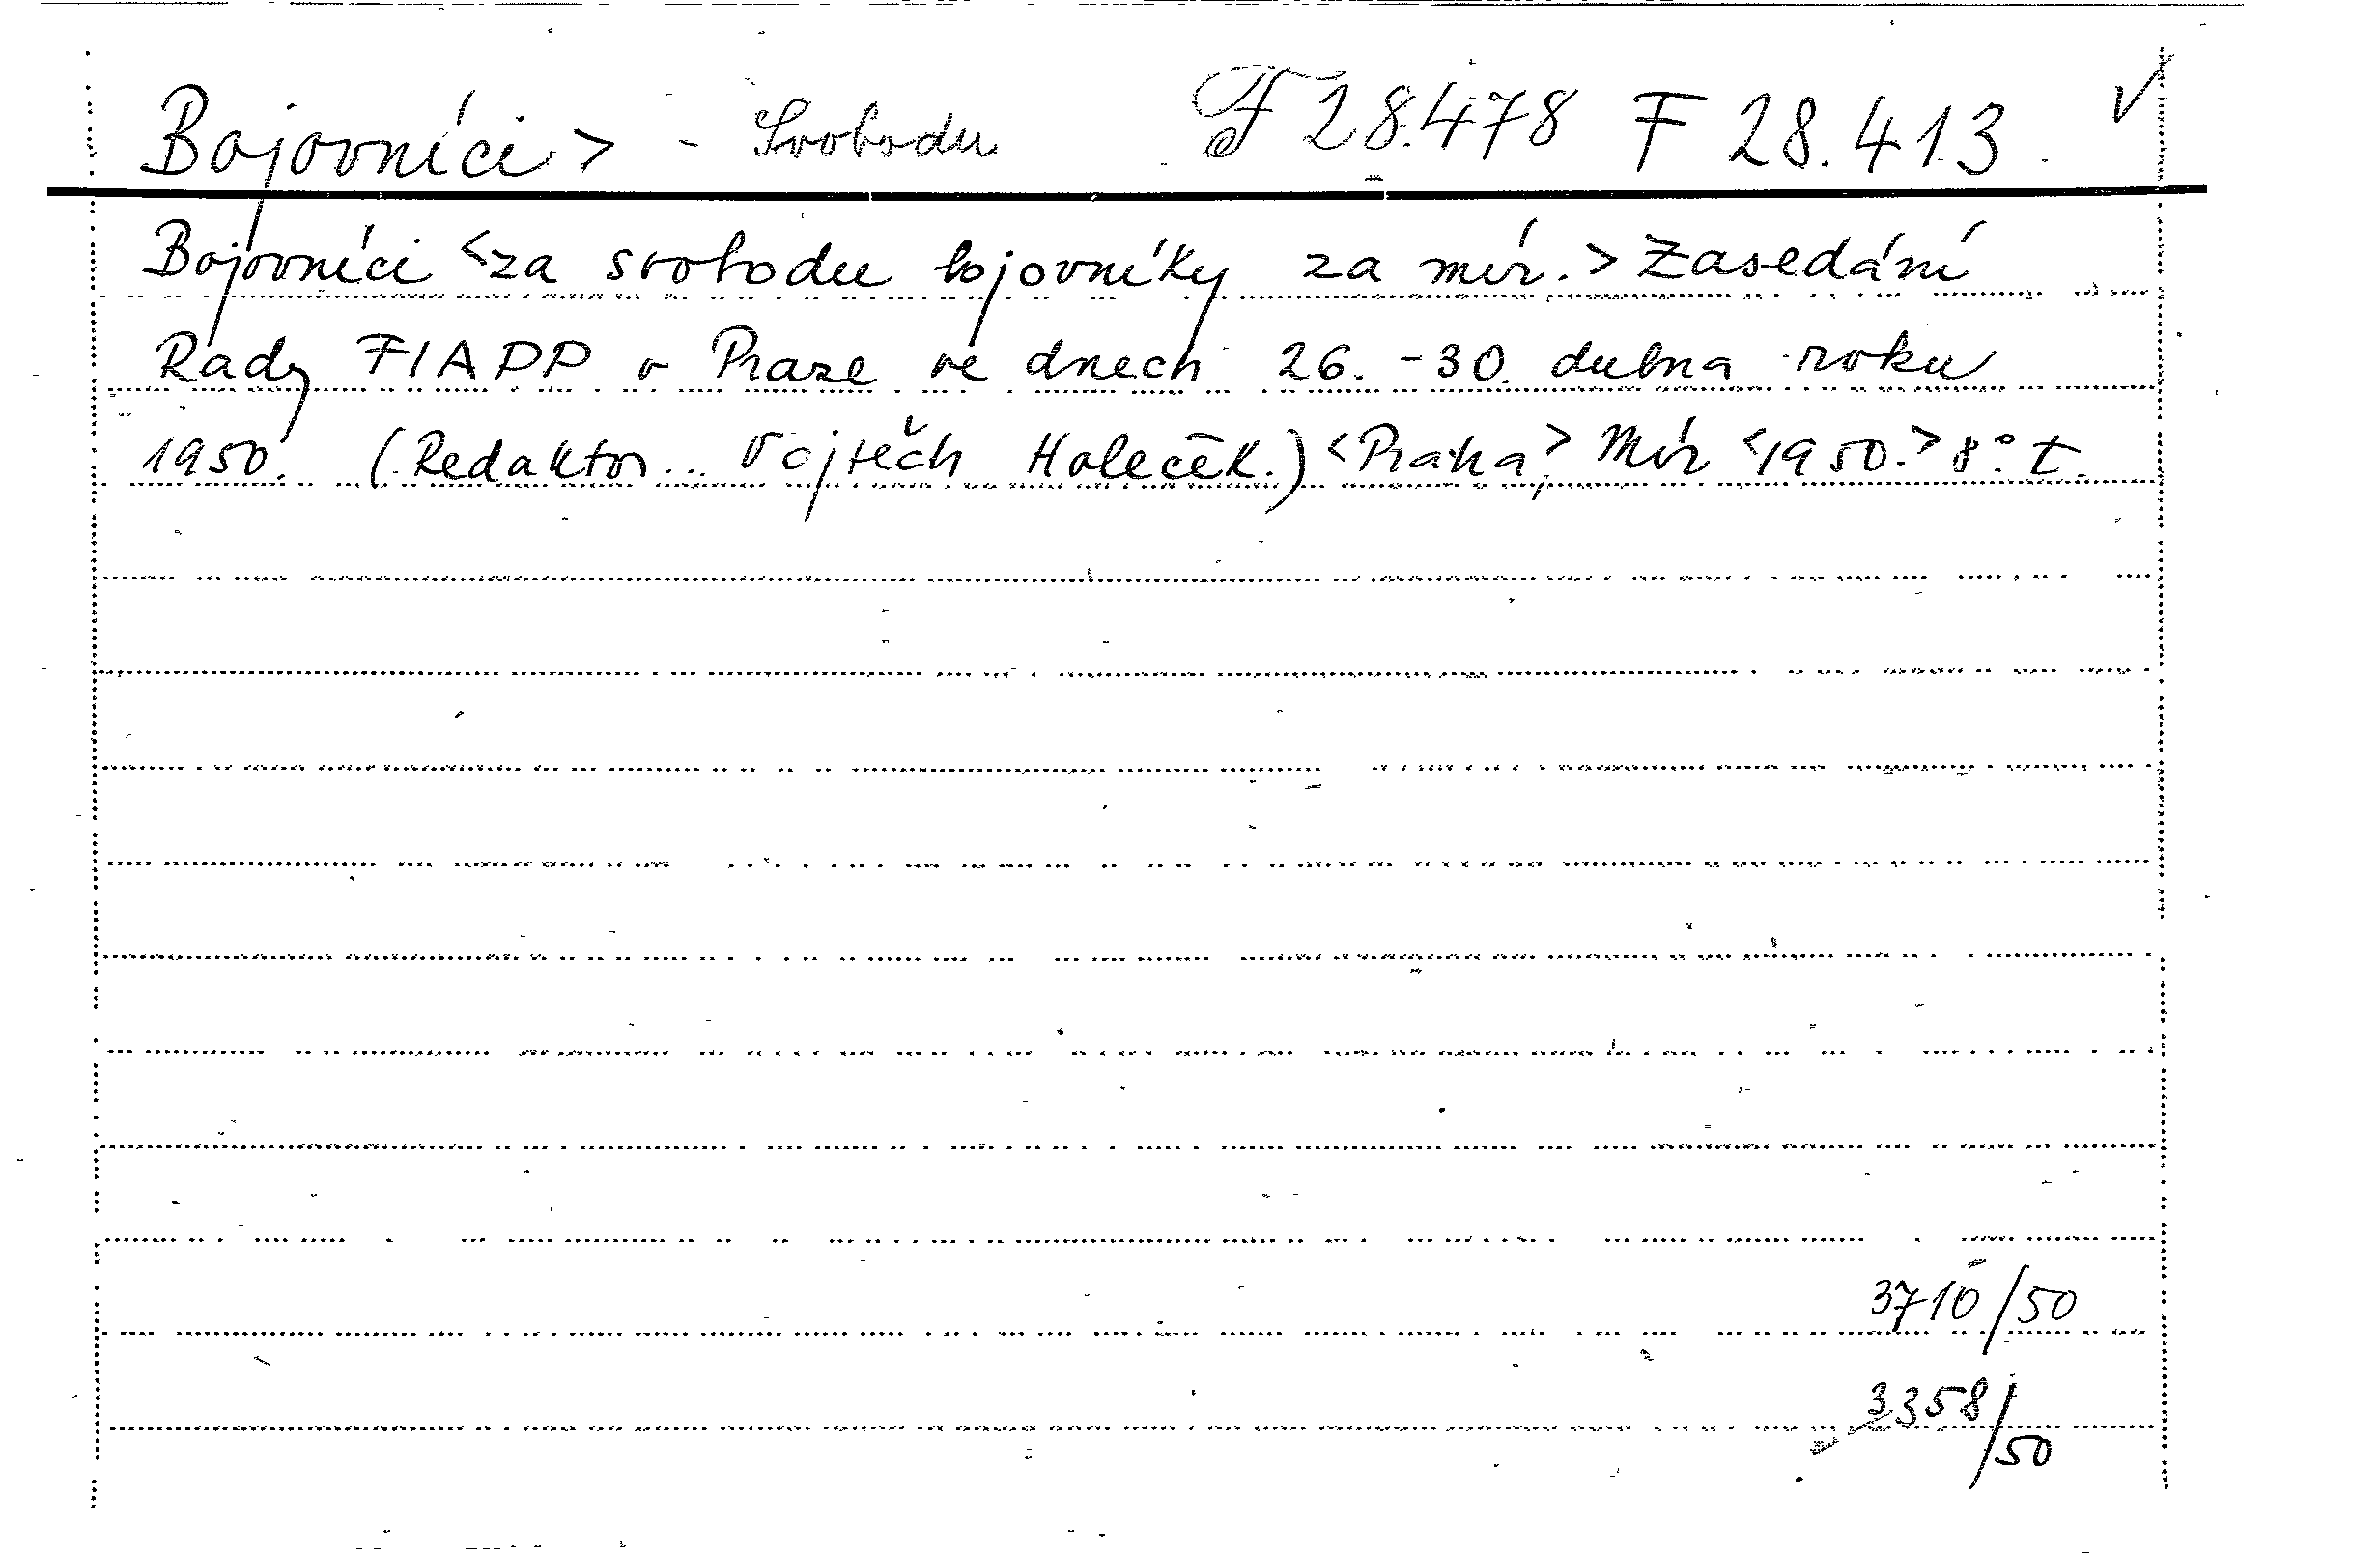 Bojovníci > - Svobodu F 28.478 F 28.413. √
Bojovníci <za svobodu bojovníky za mír.> Zasedání
Rady FIAPP v Praze ve dnech 26. - 30. dubna roku
1950. (Redaktor... Vojtěch Holeček.) <Praha,> Mír <1950.> 8°. t.
3710/50
3358/
50